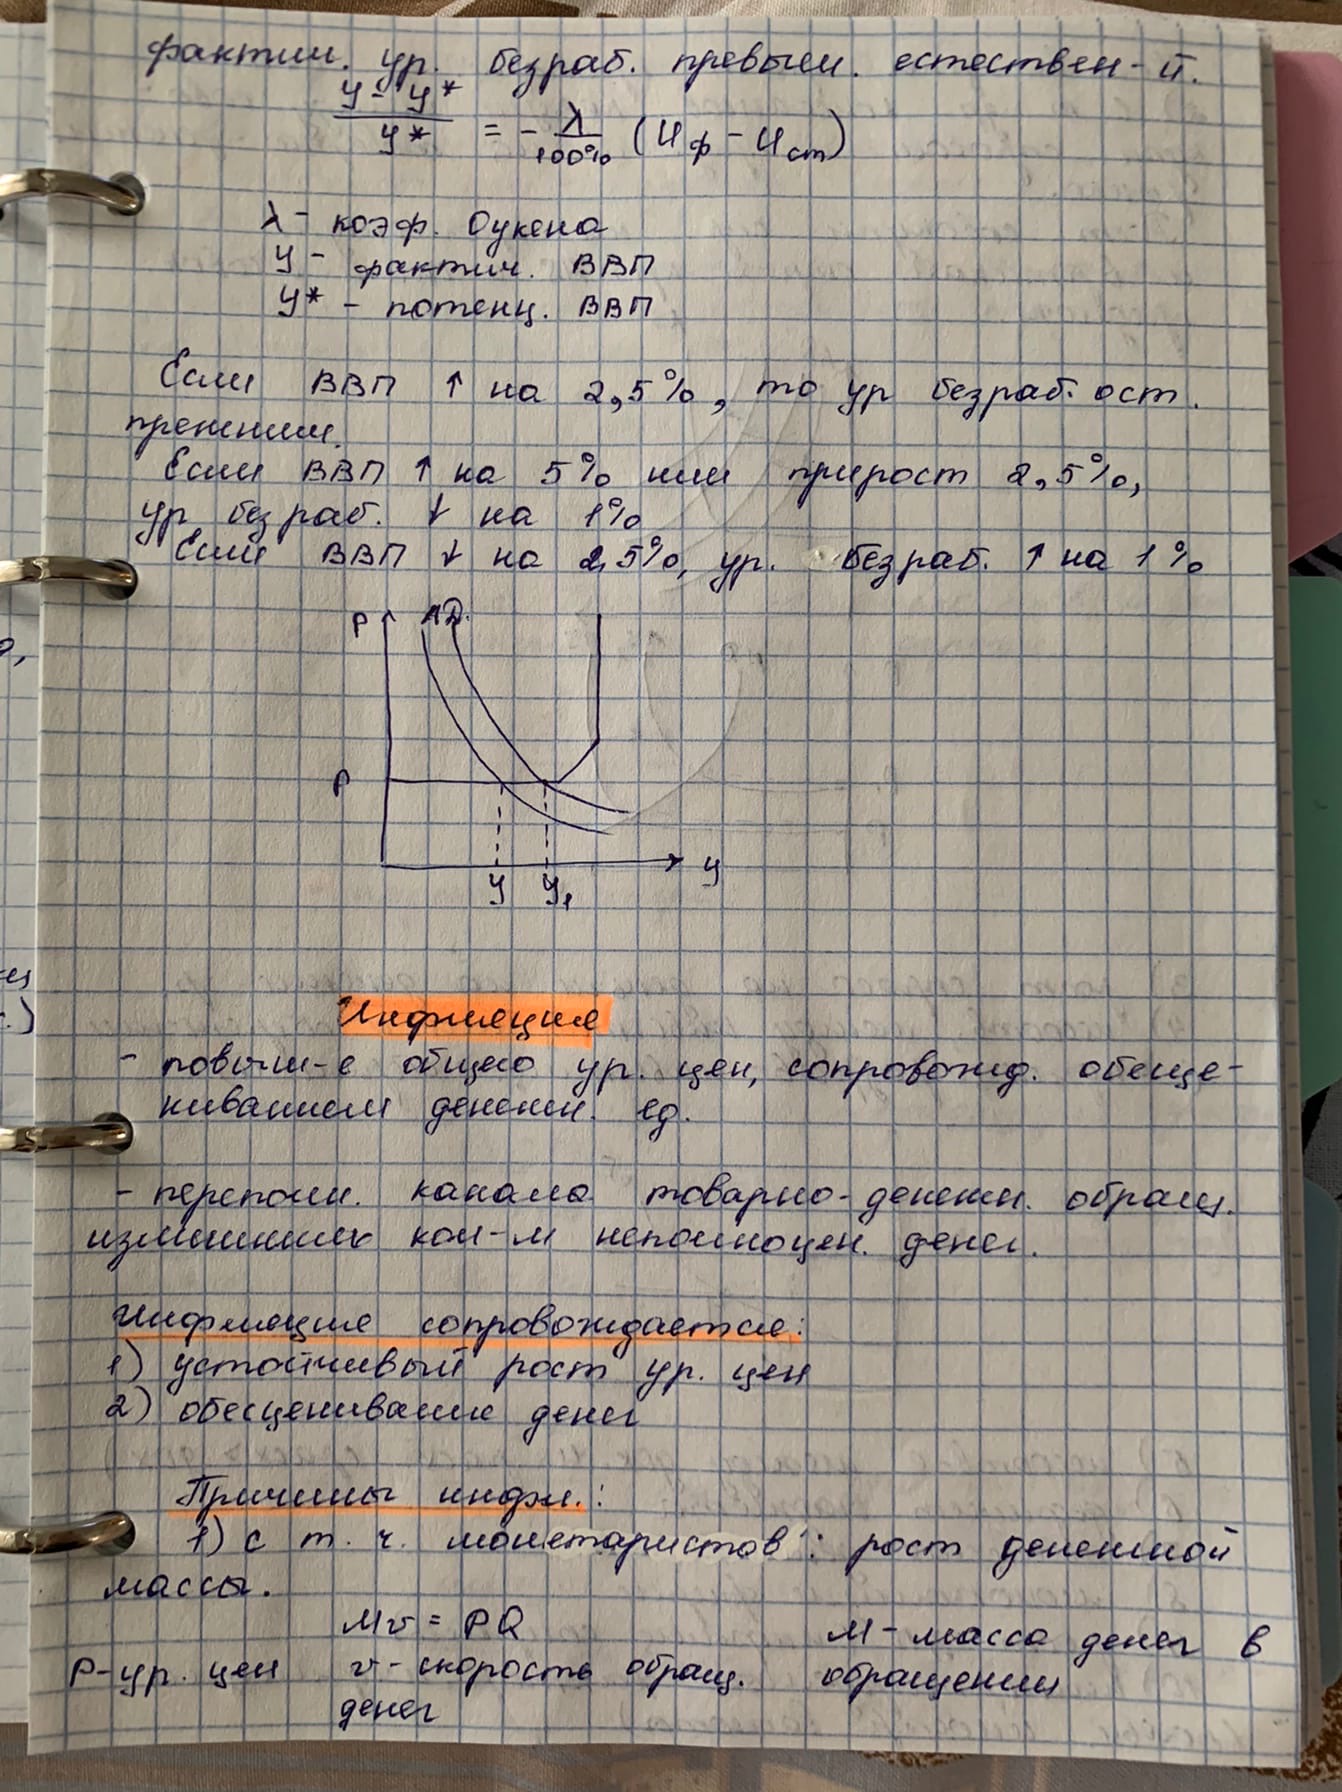 фактич. ур. безраб. превыш. естествен-й.
y - y*
y*
= - λ/100% (Uф - Uст)
λ - коэф. Оукена
y - фактич. ВВП
y* - потенц. ВВП
Если ВВП ↑ на 2,5%, то ур безраб. ост.
прежним.
Если ВВП ↑ на 5% или прирост 2,5%,
ур безраб. ↓ на 1%
Если ВВП ↓ на 2,5%, ур. безраб. ↑ на 1%
P AD
P
y y₁ y
Инфляция
- повыш-е общего ур. цен, сопровожд. обесце-
ниванием денежн. ед.
- переполн. канала товарно-денежн. обращ.
излишним кол-м неполноцен. денег.
Инфляция сопровождается:
1) устойчивый рост ур. цен
2) обесценивание денег
Причины инфл.:
1) с т. ч. монетаристов: рост денежной
массы.
Mv = PQ M - масса денег в
P - ур. цен v - скорость обращ. обращении
денег